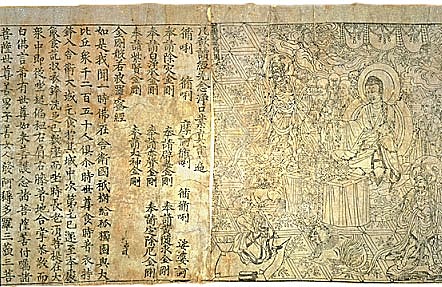 凡欲讀經先念淨口業真言一遍
脩唎 脩唎 摩訶脩唎 脩脩唎 娑婆訶
奉請除災金剛 奉請辟毒金剛
奉請金剛 奉請金剛
奉請金剛 奉請定除厄金剛
奉請紫賢金剛 奉請大神金剛
金剛般若波羅蜜經
如是我聞一時佛在舍衛國祇樹給孤獨園與大
比丘衆千二百五十人俱尒時世尊食時著衣持
鉢入舍衛大城乞食於其城中次第乞已還至本處
飯食訖收衣鉢洗足已敷座而坐時長老須菩提在大
衆中即從座起偏袒右肩右膝著地合掌恭敬而
白佛言希有世尊如來善護念諸菩薩善付囑諸
菩薩世尊善男子善女人發阿耨多羅三藐三菩